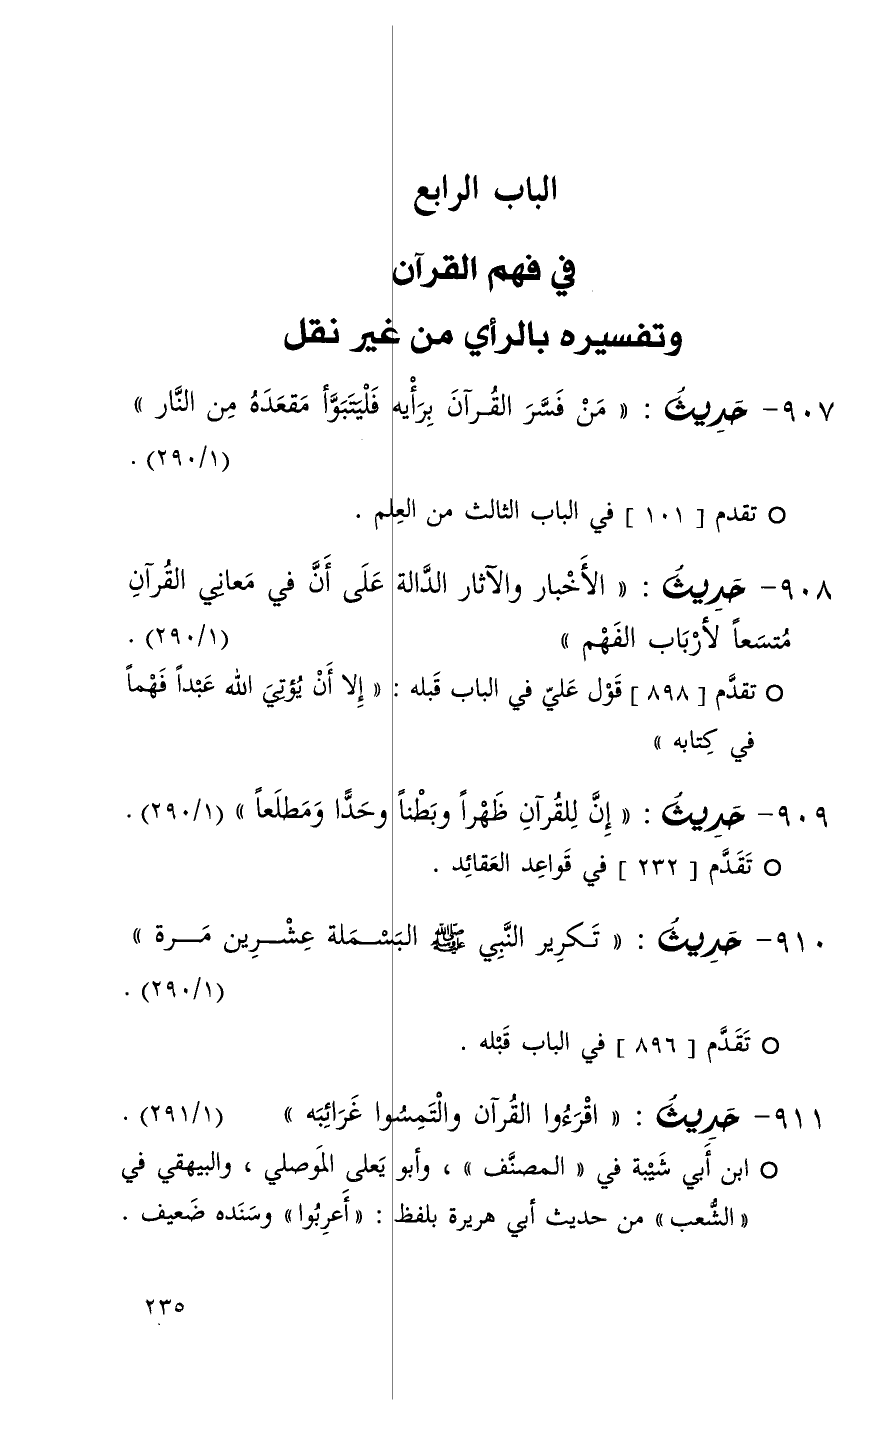 الباب الرابع
في فهم القرآن
وتفسيره بالرأي من غير نقل
٩٠٧- حَدِيثُ : « مَنْ فَسَّرَ القُرآنَ بِرَأْيِه فَلْيَتَبَوَّأ مَقعَدَهُ مِن النَّار »
(٢٩٠/١) .
○ تقدم [ ١٠١ ] في الباب الثالث من العِلم .
٩٠٨- حَدِيثُ : « الأَخْبار والآثار الدَّالة عَلَى أَنَّ في مَعانِي القُرآنِ
مُتسَعاً لأرْبَاب الفَهْم » (٢٩٠/١) .
○ تقدَّم [ ٨٩٨ ] قَوْل عَليّ في الباب قَبله : « إِلا أَنْ يُؤتِيَ الله عَبْداً فَهْماً
في كِتابه »
٩٠٩- حَدِيثُ : « إِنَّ لِلقُرآنِ ظَهْراً وبَطْناً وحَدًّا وَمَطلَعاً » (٢٩٠/١) .
○ تَقَدَّم [ ٢٣٢ ] في قَواعِد العَقائِد .
٩١٠- حَدِيثُ : « تَكرِير النَّبِي ﷺ البَسْمَلة عِشْرِين مَرة »
(٢٩٠/١) .
○ تَقَدَّم [ ٨٩٦ ] في الباب قَبْله .
٩١١- حَدِيثُ : « اقْرَءُوا القُرآن والْتَمِسُوا غَرَائِبَه » (٢٩١/١) .
○ ابن أَبي شَيْبة في « المصنَّف » ، وأبو يَعلى المَوصلي ، والبيهقي في
« الشُّعب » من حديث أبي هريرة بلفظ : « أَعرِبُوا » وسَنَده ضَعيف .
٢٣٥